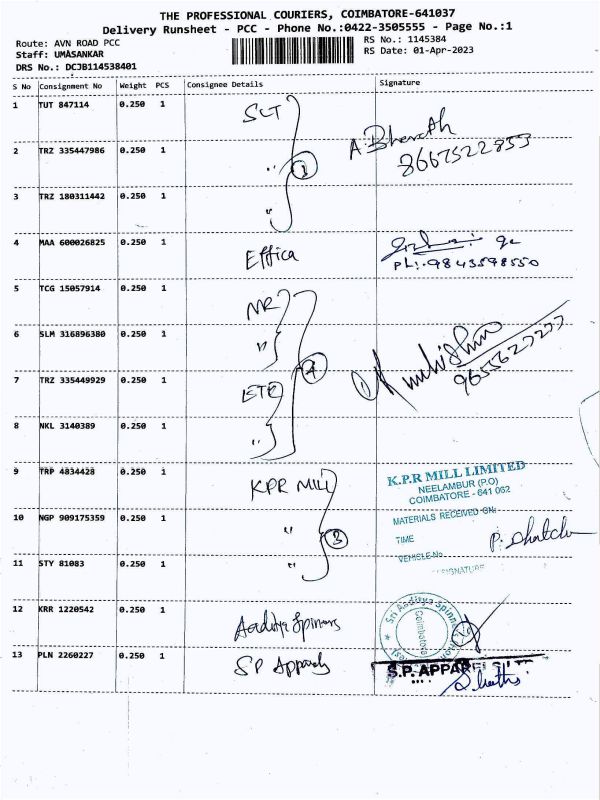 THE PROFESSIONAL COURIERS, COIMBATORE-641037
Delivery Runsheet - PCC - Phone No.:0422-3505555 - Page No.:1
Route: AVN ROAD PCC
Staff: UMASANKAR
DRS No.: DCJB114538401
RS No.: 1145384
RS Date: 01-Apr-2023
S No Consignment No Weight PCS Consignee Details Signature
1 TUT 847114 0.250 1 SLT
A. Bharath
8667522853
2 TRZ 335447986 0.250 1 " 3
3 TRZ 180311442 0.250 1 "
4 MAA 600026825 0.250 1 Effica
Ph:-9843598550
5 TCG 15057914 0.250 1 NR
6 SLM 316896380 0.250 1 "
4
7 TRZ 335449929 0.250 1 ETC
8 NKL 3140389 0.250 1 "
9 TRP 4834428 0.250 1 KPR MILL
K.P.R MILL LIMITED
NEELAMBUR (P.O)
COIMBATORE - 641 062
10 NGP 909175359 0.250 1 " 3
MATERIALS RECEIVED ON:
TIME
VEHICLE No.
SIGNATURE
11 STY 81083 0.250 1 "
12 KRR 1220542 0.250 1 Aaditya Spinners
Sri Aaditya Spinn
Coimbatore
13 PLN 2260227 0.250 1 SP Apparels
S.P. APPAREL